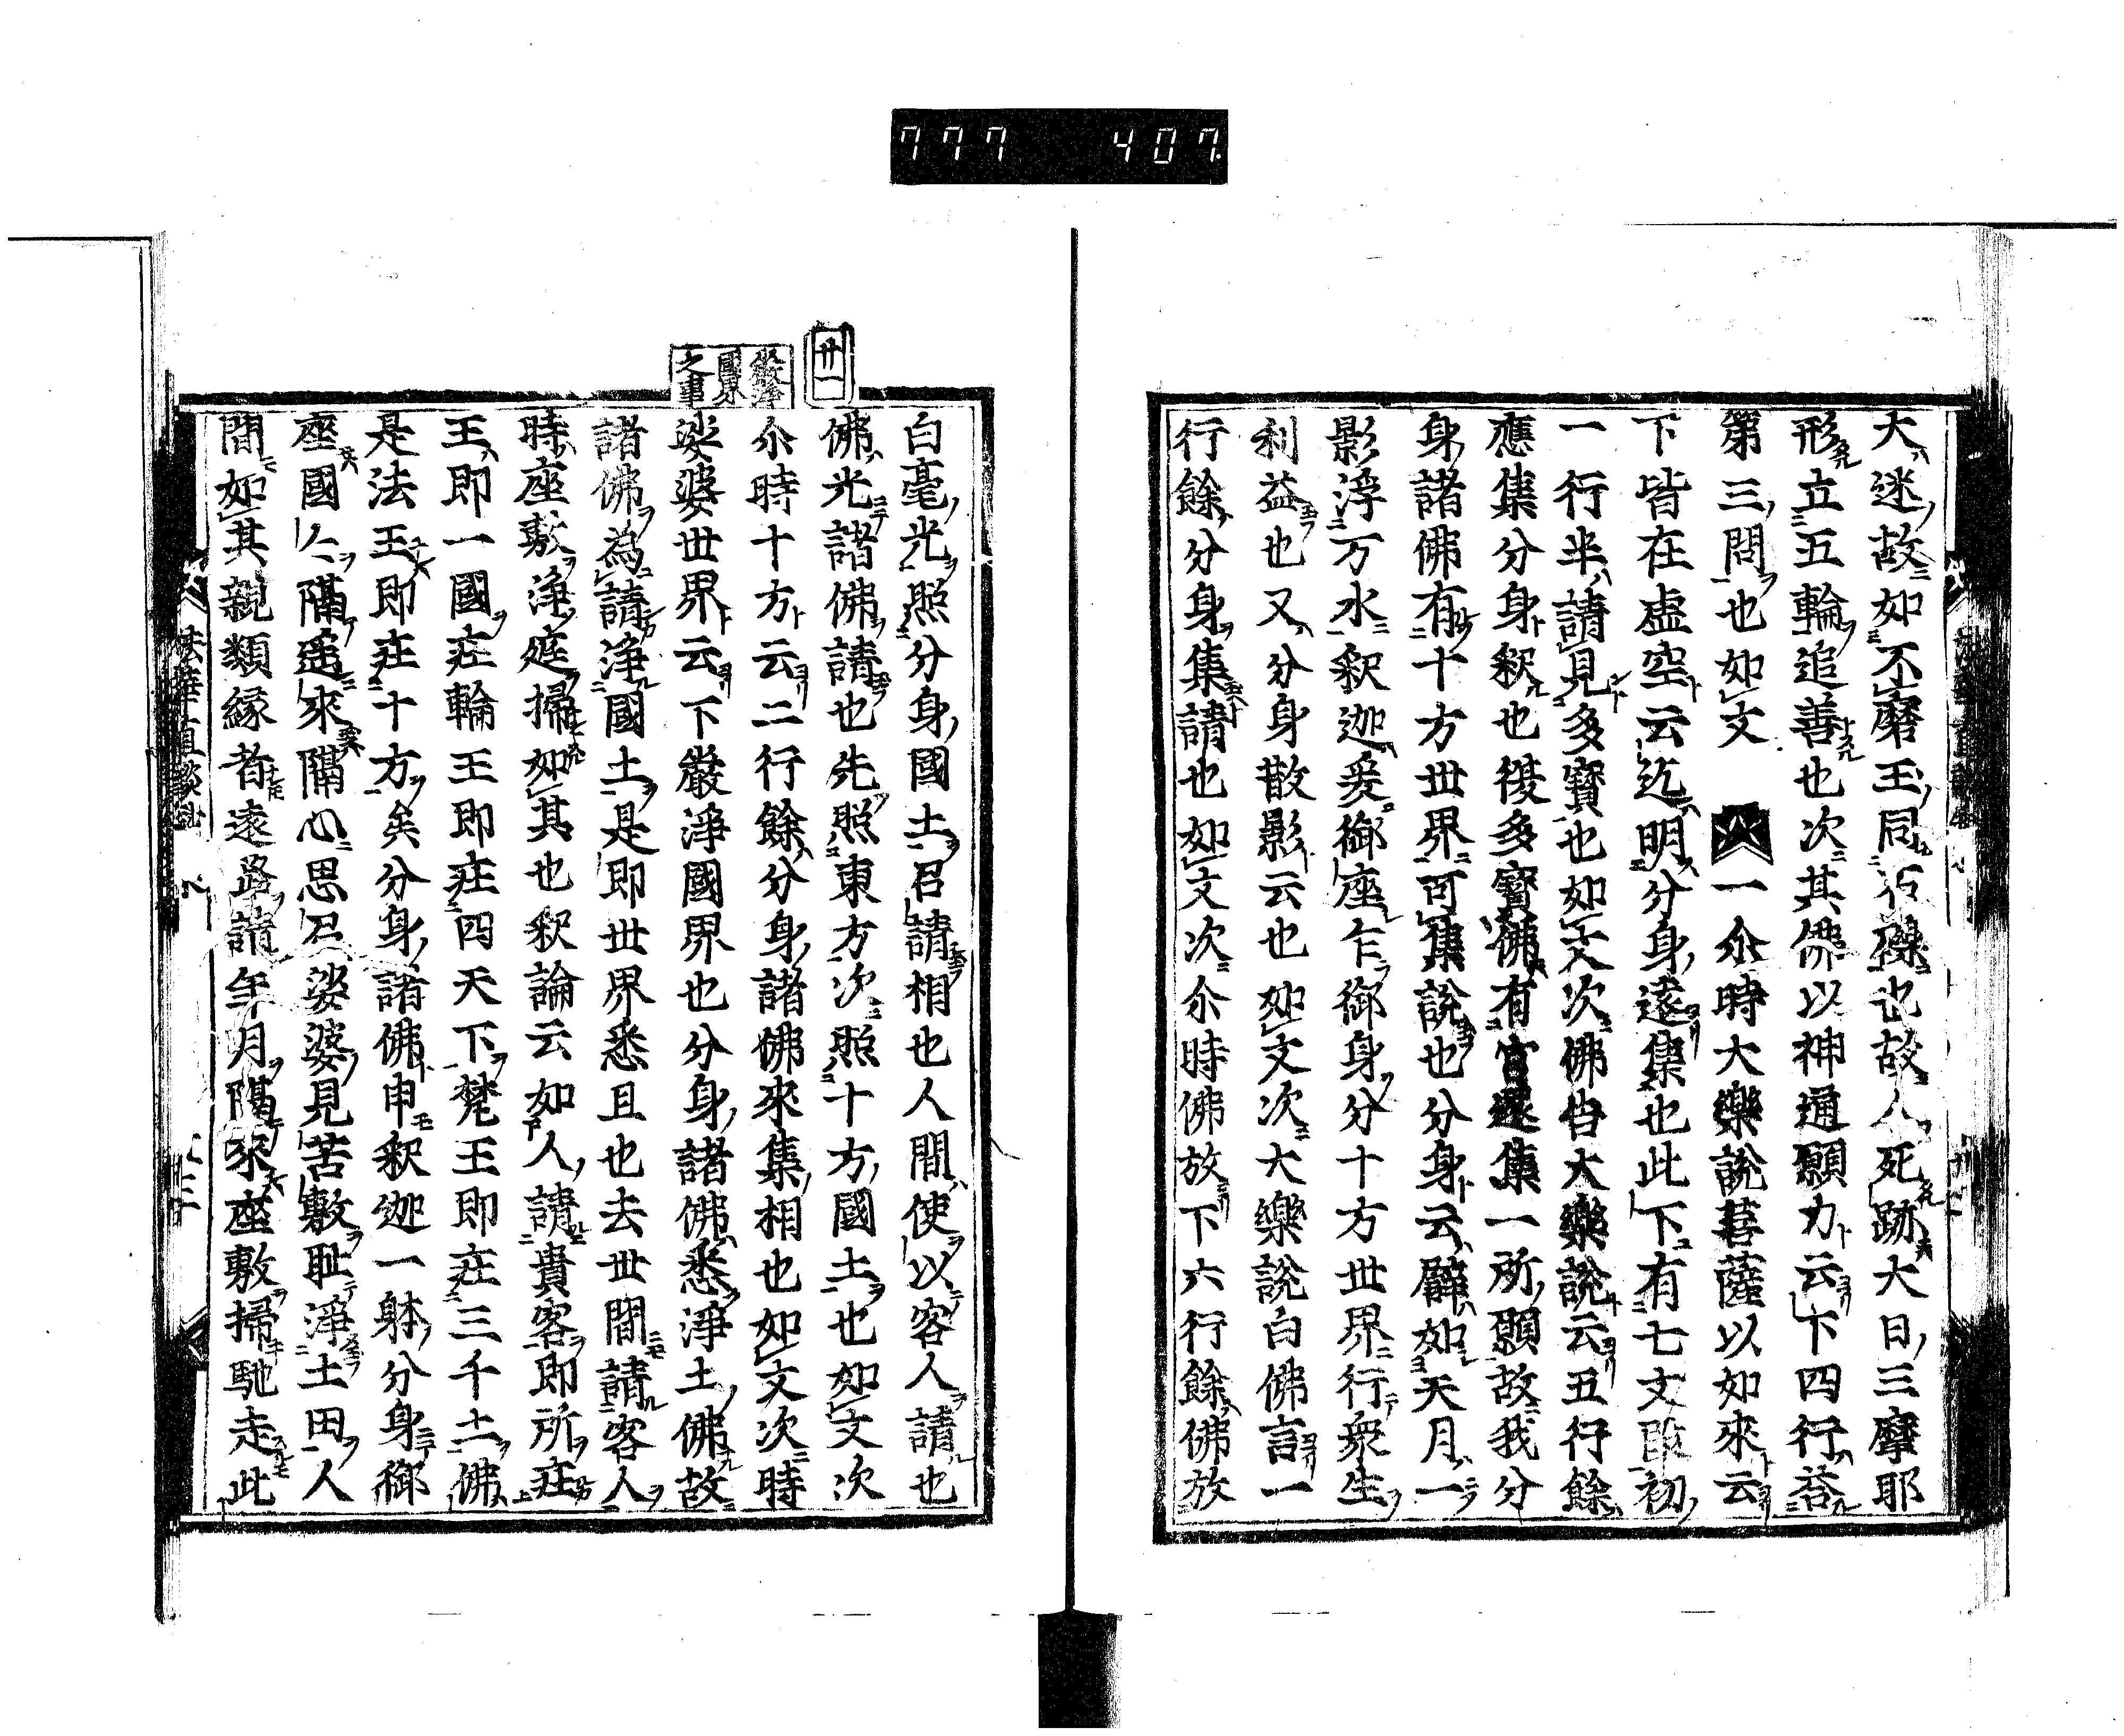 777 407
大迷故如不磨玉同石礫也故人死跡大日三摩耶
形立五輪追善也次其佛以神通願力云下四行答
第三問也如文 一尒時大樂說菩薩以如來云
下皆在虛空云迄明分身遠集也此下有七文初
一行半請見多寶也如文次佛告大樂說云五行餘
應集分身釈也彼多寶佛有還集一所願故我分
身諸佛有十方世界可集說也分身云譬如天月一
影浮万水釈迦爰御座乍御身分十方世界行衆生
利益也又分身散影云也如文次大樂說白佛言一
行餘分身集請也如文次尒時佛放下六行餘佛放
白毫光照分身國土召請相也人間使以客人請也
佛光諸佛請也先照東方次照十方國土也如文次
尒時十方云二行餘分身諸佛來集相也如文次時
娑婆世界云下嚴淨國界也分身諸佛悉淨土佛故
諸佛為請淨國土是即世界悉且也去世間請客人
時座敷淨庭掃如其也釈論云如人請貴客即所庄
王即一國庄輪王即庄四天下梵王即庄三千土佛
是法王即庄十方矣分身諸佛申釈迦一躰分身御
座國人隔遥來隔心思召娑婆見苦敷耻淨土田人
間如其親類緣者遠路請年月隔來座敷掃馳走此
廿一
嚴淨
國界
之事
法華直談鈔